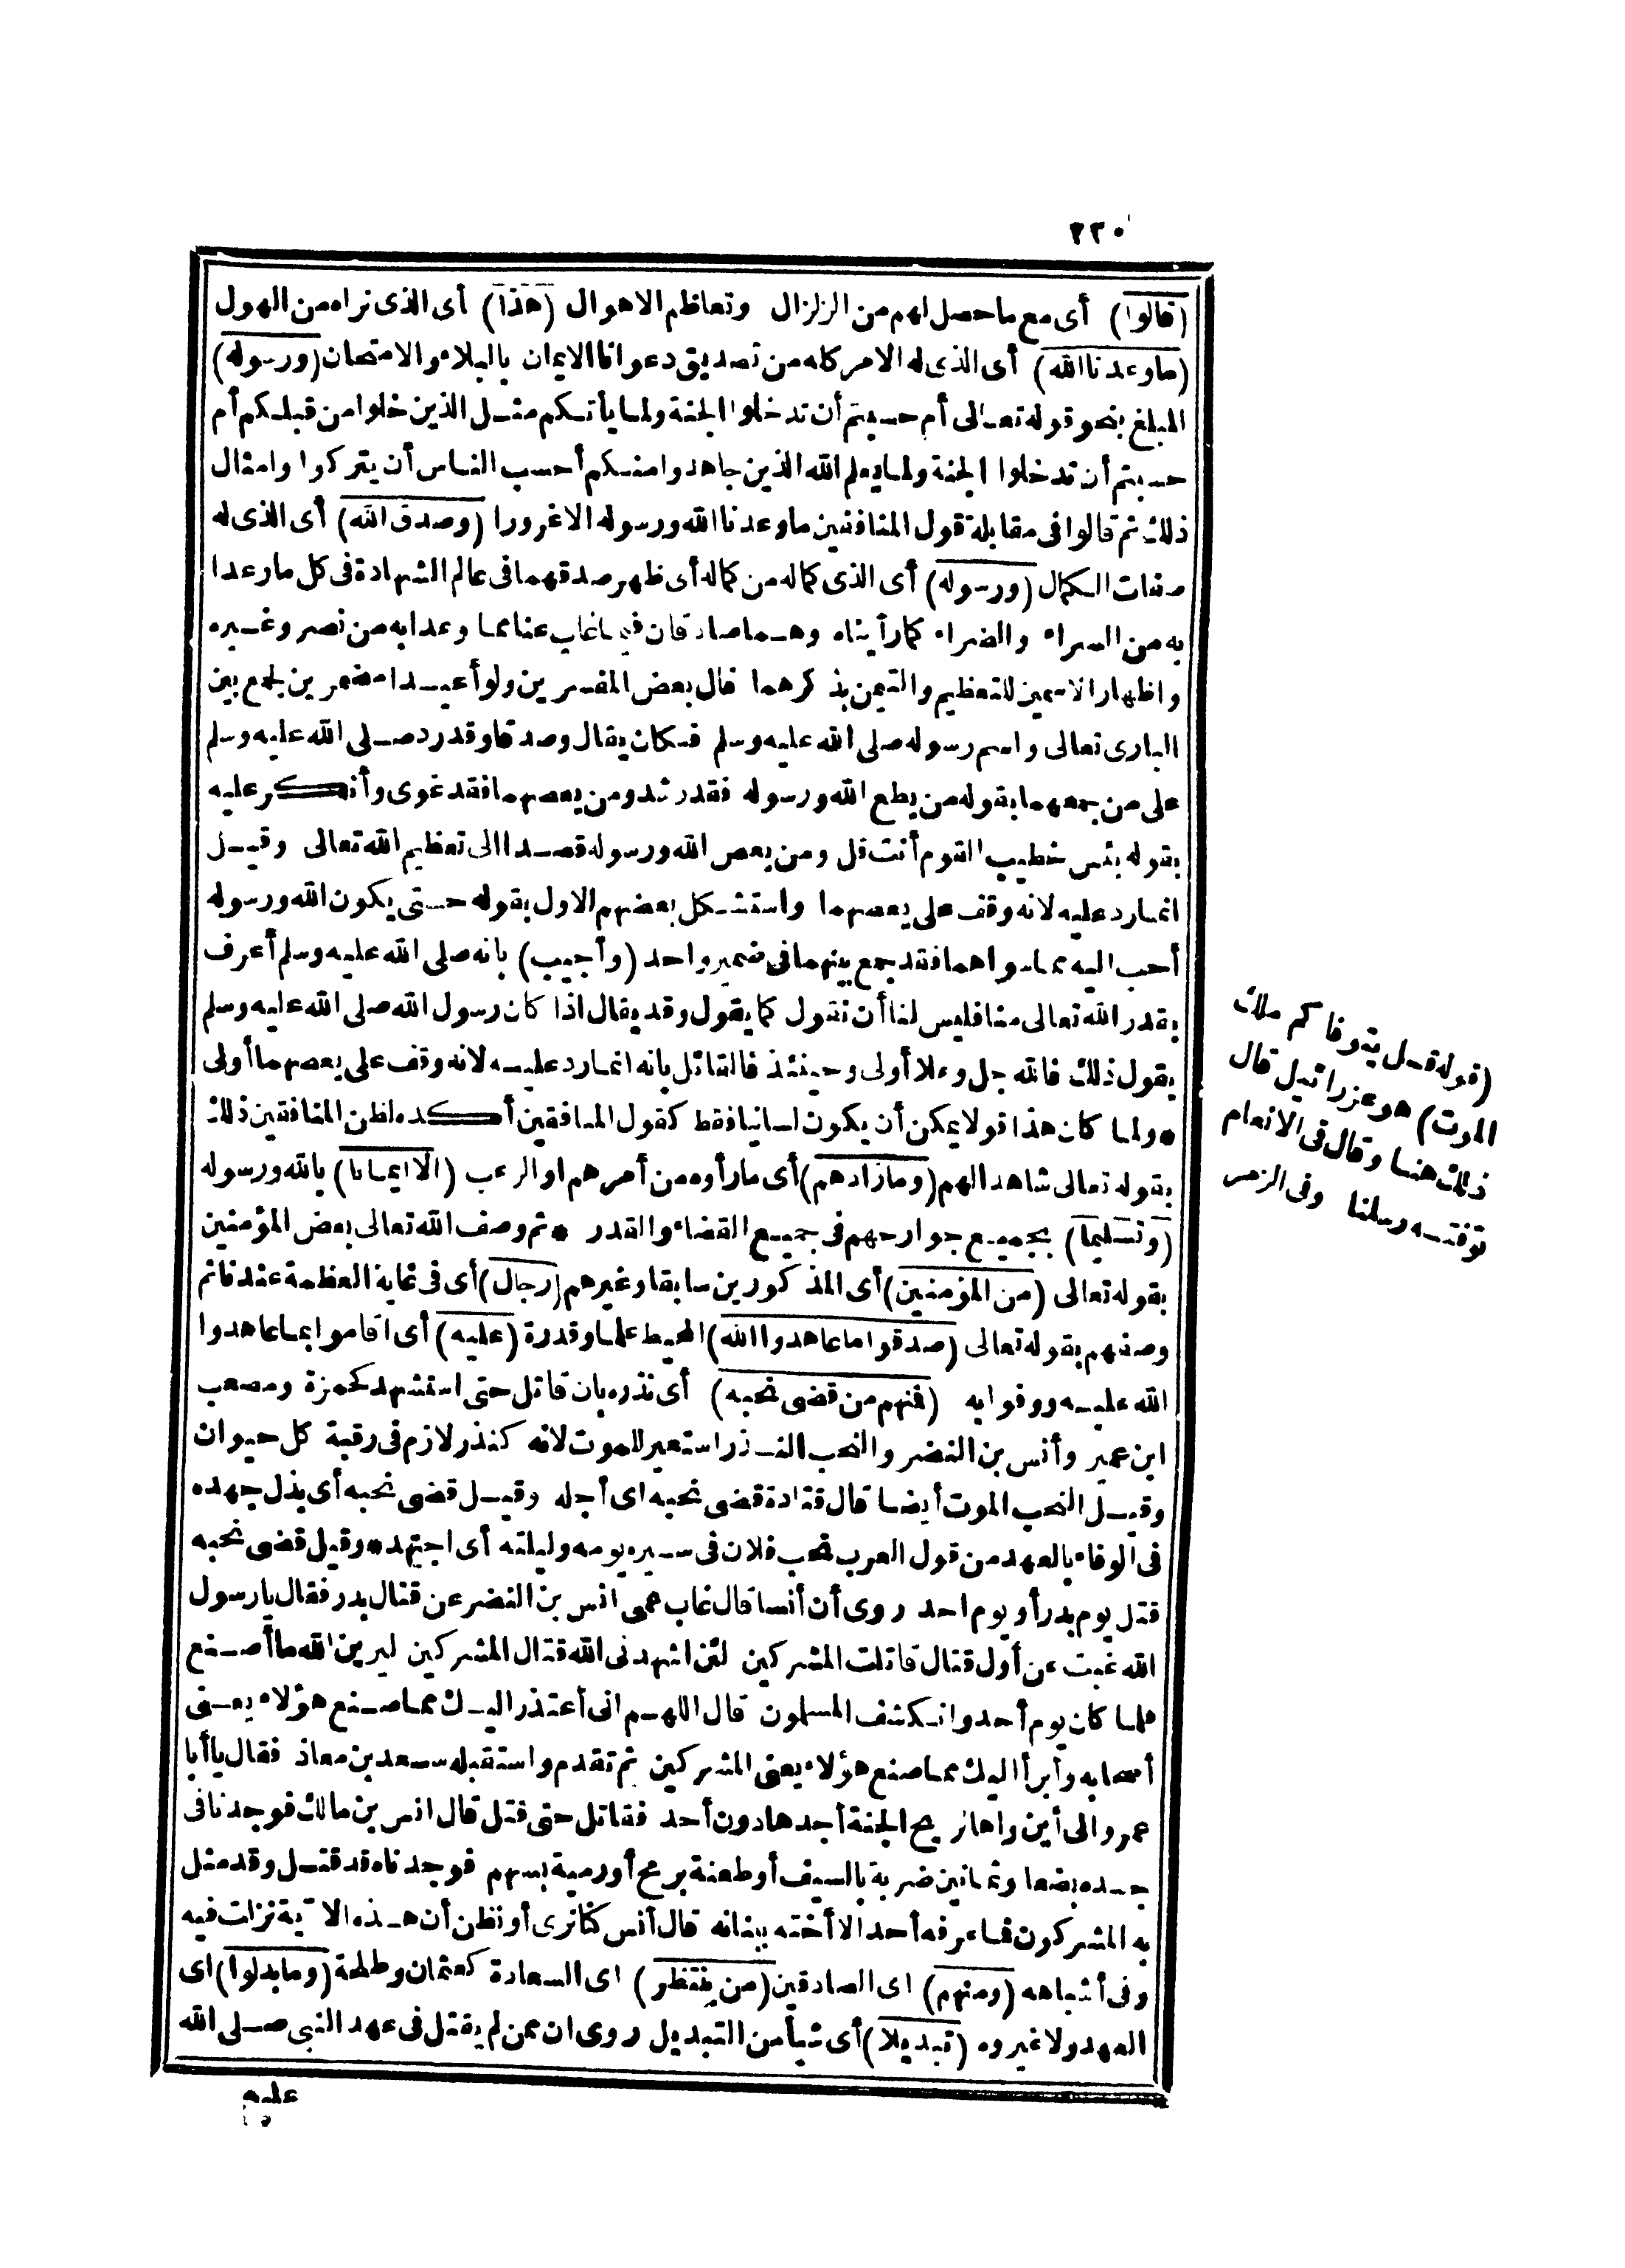 ٢٣٠
(قالوا) أى مع ما حصل لهم من الزلزال وتعاظم الاهوال (هذا) أى الذى نراه من الهول
(ما وعدنا الله) أى الذى له الامر كله من تصديق دعوانا الايمان بالبلاء والامتحان (ورسوله)
المبلغ بنحو قوله تعالى أم حسبتم أن تدخلوا الجنة ولما يأتكم مثل الذين خلوا من قبلكم أم
حسبتم أن تدخلوا الجنة ولما يعلم الله الذين جاهدوا منكم أحسب الناس أن يتركوا وامثال
ذلك ثم قالوا فى مقابلة قول المنافقين ما وعدنا الله ورسوله الا غرورا (وصدق الله) أى الذى له
صفات الكمال (ورسوله) أى الذى كماله من كماله أى ظهر صدقهما فى عالم الشهادة فى كل ما وعدا
به من السراء والضراء كما رأيناه وهما صادقان فيما غاب عنا مما وعدا به من نصر وغيره
واظهار الاسمين للتعظيم والتيمن بذكرهما قال بعض المفسرين ولو أعيدا مضمرين لجمع بين
البارى تعالى واسم رسوله صلى الله عليه وسلم فكان يقال وصدقا وقد رد صلى الله عليه وسلم
على من جمعهما بقوله من يطع الله ورسوله فقد رشد ومن يعصهما فقد غوى وأنكر عليه
بقوله بئس خطيب القوم أنت قل ومن يعص الله ورسوله قصدا الى تعظيم الله تعالى وقيل
انما رد عليه لانه وقف على يعصهما واستشكل بعضهم الاول بقوله حتى يكون الله ورسوله
أحب اليه مما سواهما فقد جمع بينهما فى ضمير واحد (وأجيب) بانه صلى الله عليه وسلم أعرف
بقدر الله تعالى منا فليس لنا أن نقول كما يقول وقد يقال اذا كان رسول الله صلى الله عليه وسلم
يقول ذلك فالله جل وعلا أولى وحينئذ فالقائل بانه انما رد عليه لانه وقف على يعصهما أولى
* ولما كان هذا قولا يمكن أن يكون لسانيا فقط كقول المنافقين أكده لظن المنافقين ذلك
بقوله تعالى شاهدا لهم (وما زادهم) أى ما رأوه من أمرهم او الرعب (الا ايمانا) بالله ورسوله
(وتسليما) بجميع جوارحهم فى جميع القضاء والقدر * ثم وصف الله تعالى بعض المؤمنين
بقوله تعالى (من المؤمنين) أى المذكورين سابقا وغيرهم (رجال) أى فى غاية العظمة عندنا ثم
وصفهم بقوله تعالى (صدقوا ما عاهدوا الله) المحيط علما وقدرة (عليه) أى اقاموا بما عاهدوا
الله عليه ووفوا به (فمنهم من قضى نحبه) أى نذره بان قاتل حتى استشهد كحمزة ومصعب
ابن عمير وأنس بن النضر والنحب النذر استعير للموت لانه كنذر لازم فى رقبة كل حيوان
وقيل النحب الموت أيضا قال قتادة قضى نحبه اى أجله وقيل قضى نحبه أى بذل جهده
فى الوفاء بالعهد من قول العرب نحب فلان فى سيره يومه وليلته أى اجتهد * وقيل قضى نحبه
قتل يوم بدر أو يوم احد روى أن أنسا قال غاب عمى انس بن النضر عن قتال بدر فقال يا رسول
الله غبت عن أول قتال قاتلت المشركين لئن اشهدنى الله قتال المشركين ليرين الله ما أصنع
فلما كان يوم أحد وانكشف المسلمون قال اللهم انى أعتذر اليك مما صنع هؤلاء يعنى
أصحابه وأبرأ اليك مما صنع هؤلاء يعنى المشركين ثم تقدم واستقبله سعد بن معاذ فقال يا أبا
عمرو الى أين واها لريح الجنة أجدها دون أحد فقاتل حتى قتل قال انس بن مالك فوجدنا فى
جسده بضعا وثمانين ضربة بالسيف أو طعنة برمح أو رمية بسهم فوجدناه قد قتل وقد مثل
به المشركون فما عرفه أحد الا أخته ببنانه قال أنس كنا نرى أو نظن أن هذه الآية نزلت فيه
وفى أشباهه (ومنهم) اى الصادقين (من ينتظر) اى السعادة كعثمان وطلحة (وما بدلوا) اى
العهد ولا غيروه (تبديلا) أى شيأ من التبديل روى ان ممن لم يقتل فى عهد النبى صلى الله
عليه
(قوله قل يتوفاكم ملك
الموت) هو عزرائيل قال
ذلك هنا وقال فى الانعام
توفته رسلنا وفى الزمر